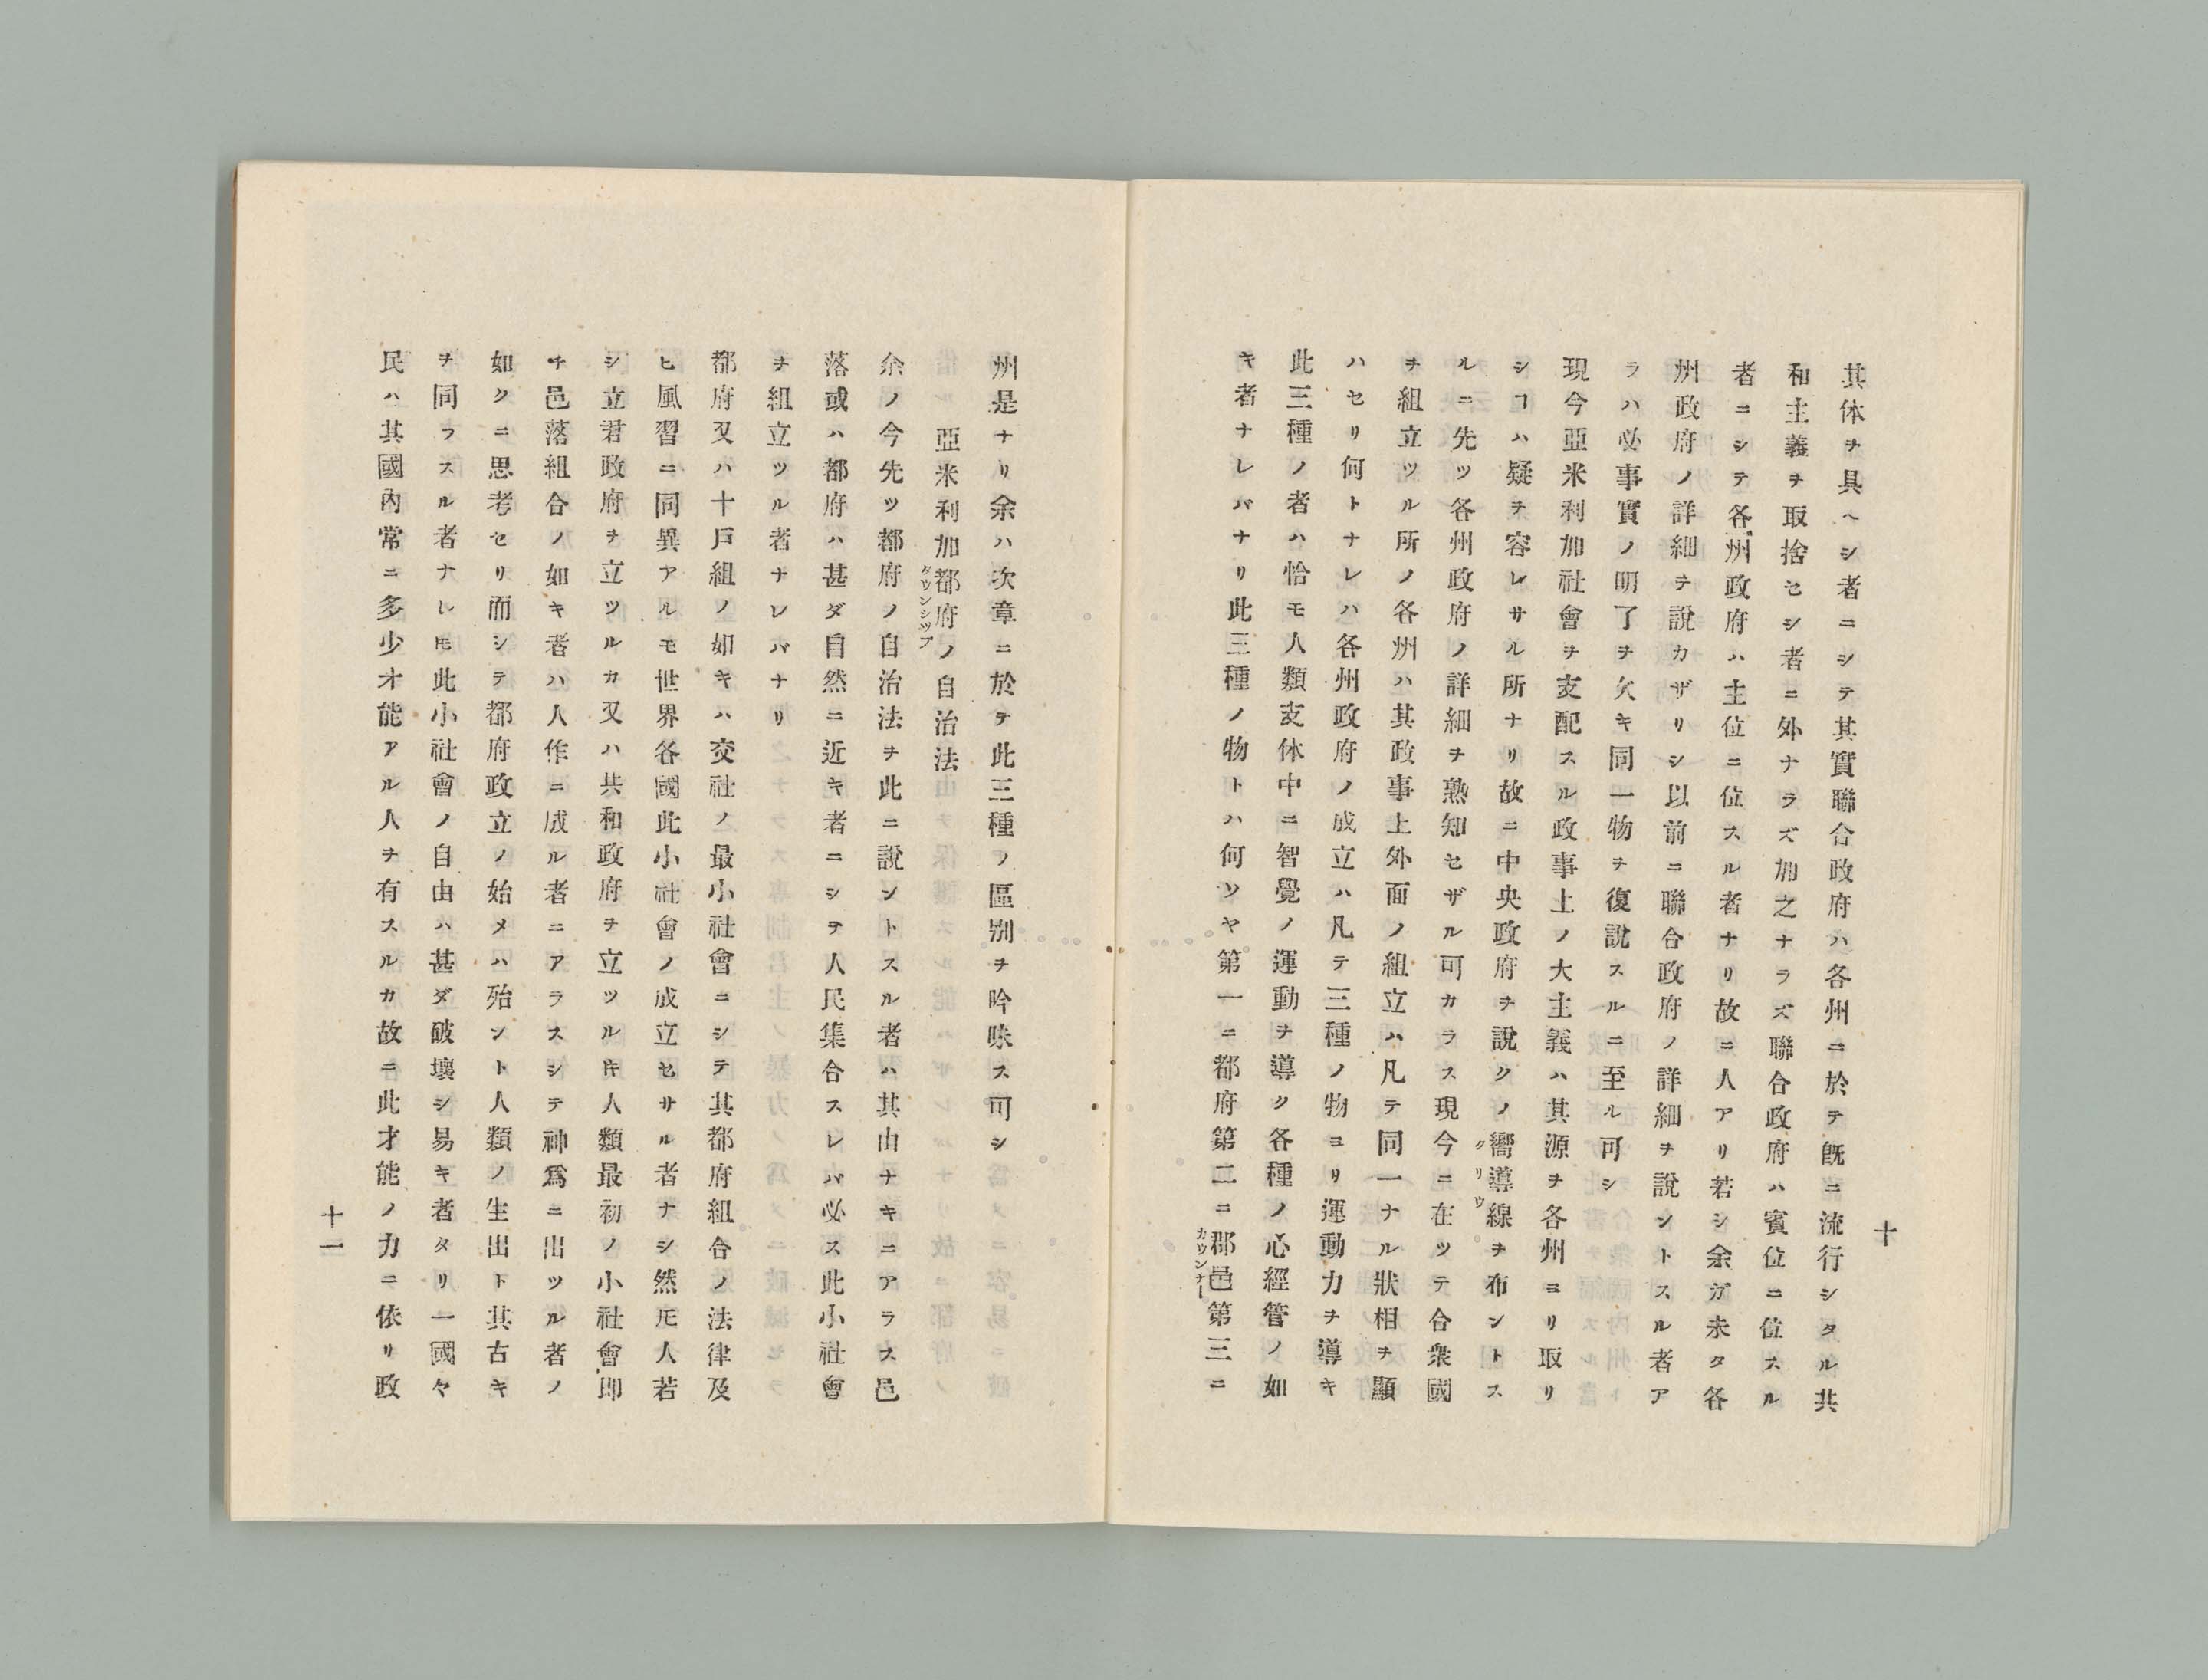 十
其体ヲ具ヘシ者ニシテ其實聯合政府ハ各州ニ於テ既ニ流行シタル共
和主義ヲ取捨セシ者ニ外ナラズ加之ナラズ聯合政府ハ賓位ニ位スル
者ニシテ各州政府ハ主位ニ位スル者ナリ故ニ人アリ若シ余ガ未タ各
州政府ノ詳細ヲ說カザリシ以前ニ聯合政府ノ詳細ヲ說ントスル者ア
ラハ必事實ノ明了ヲ欠キ同一物ヲ復說スルニ至ル可シ
現今亞米利加社會ヲ支配スル政事上ノ大主義ハ其源ヲ各州ヨリ取リ
シヿハ疑ヲ容レサル所ナリ故ニ中央政府ヲ說クノ嚮導線ヲ布ントス
クリウ
ルニ先ツ各州政府ノ詳細ヲ熟知セザル可カラス現今ニ在ツテ合衆國
ヲ組立ツル所ノ各州ハ其政事上外面ノ組立ハ凡テ同一ナル狀相ヲ顯
ハセリ何トナレハ各州政府ノ成立ハ凡テ三種ノ物ヨリ運動力ヲ導キ
此三種ノ者ハ恰モ人類支体中ニ智覺ノ運動ヲ導ク各種ノ心經管ノ如
キ者ナレバナリ此三種ノ物トハ何ソヤ第一ニ都府第二ニ郡邑第三ニ
カウンチー
州是ナリ余ハ次章ニ於テ此三種ノ區別ヲ吟味ス可シ
亞米利加都府ノ自治法
タウンシツプ
余ノ今先ツ都府ノ自治法ヲ此ニ說ントスル者ハ其由ナキニアラス邑
落或ハ都府ハ甚ダ自然ニ近キ者ニシテ人民集合スレバ必ス此小社會
ヲ組立ツル者ナレバナリ
都府又ハ十戶組ノ如キハ交社ノ最小社會ニシテ其都府組合ノ法律及
ヒ風習ニ同異アルモ世界各國此小社會ノ成立セサル者ナシ然𪜈人若
シ立君政府ヲ立ツルカ又ハ共和政府ヲ立ツルモ人類最初ノ小社會卽
チ邑落組合ノ如キ者ハ人作ニ成ル者ニアラスシテ神爲ニ出ツル者ノ
如クニ思考セリ而シテ都府政立ノ始メハ殆ント人類ノ生出ト其古キ
ヲ同フスル者ナレ𪜈此小社會ノ自由ハ甚ダ破壞シ易キ者タリ一國々
民ハ其國內常ニ多少才能アル人ヲ有スルカ故ニ此才能ノ力ニ依リ政
十一